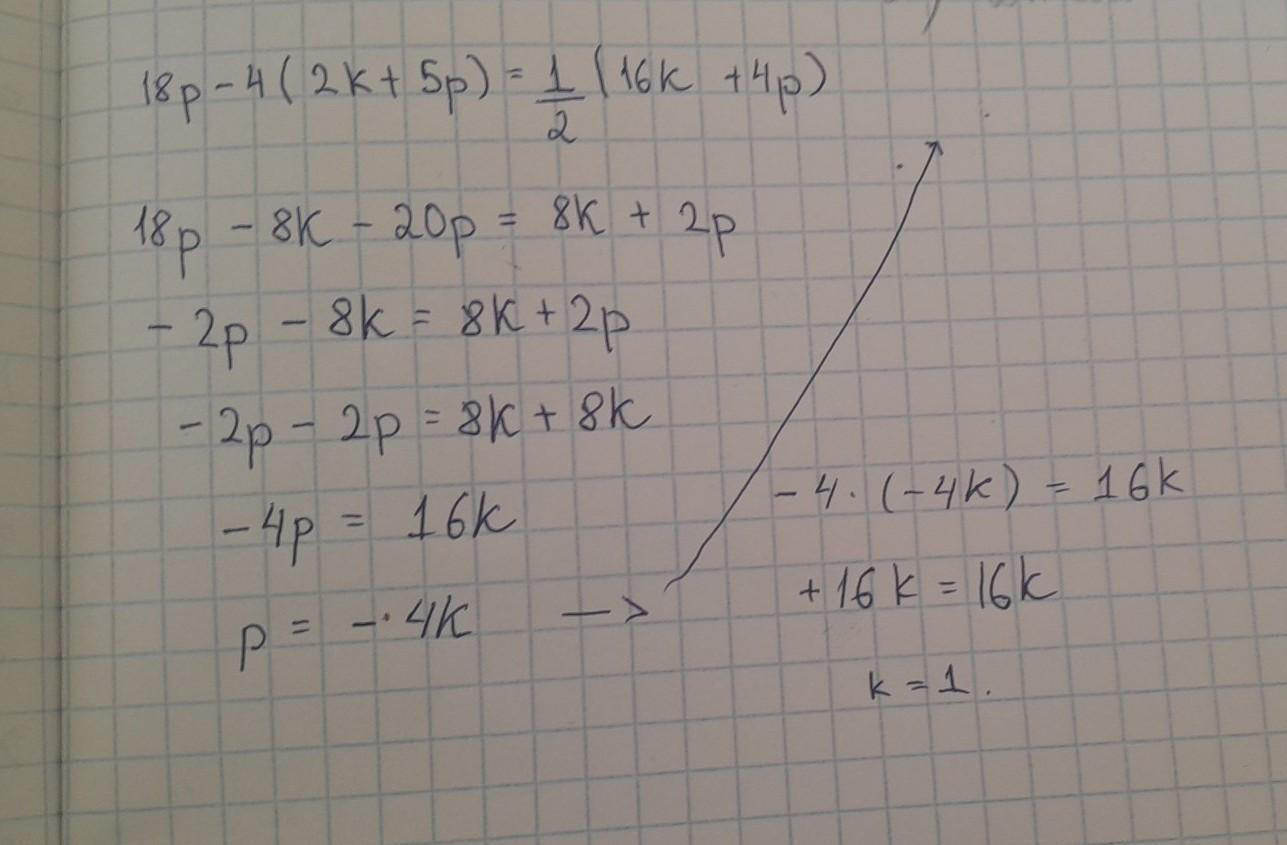 18p - 4(2k + 5p) = 1/2 (16k + 4p)
18p - 8k - 20p = 8k + 2p
- 2p - 8k = 8k + 2p
- 2p - 2p = 8k + 8k
- 4p = 16k
p = - 4k →
- 4 · (-4k) = 16k
+ 16k = 16k
k = 1.